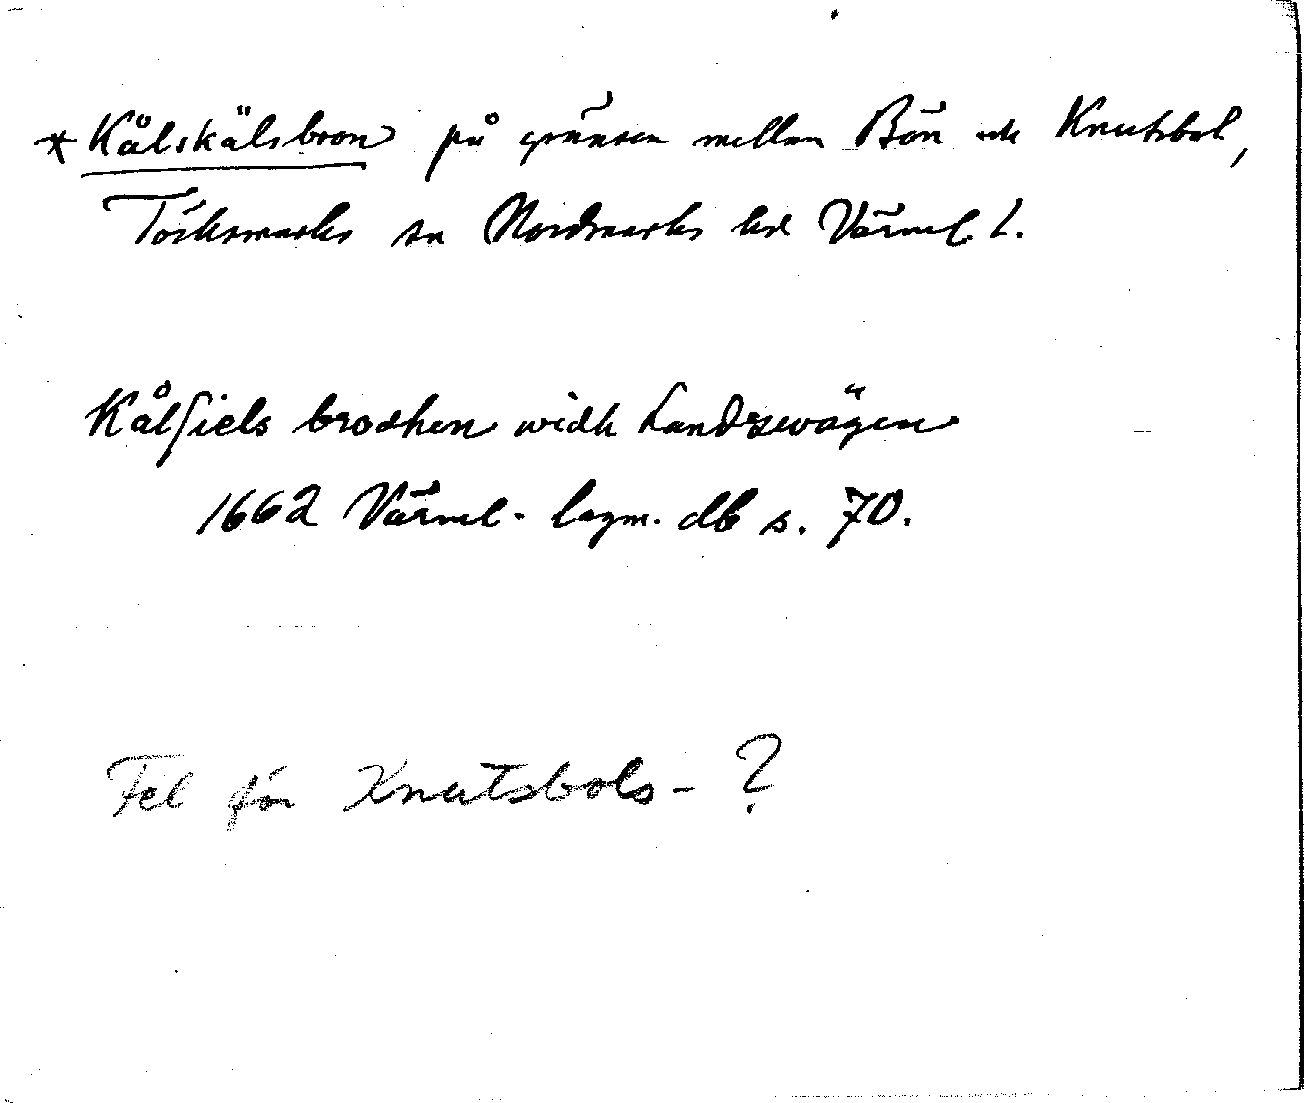 * Kålskälsbron på gränsen mellan Bön och Knutsbol,
Töcksmarks sn Nordmarks hd Värml. l.
Kålsiels brodhen widh Landzwägen
1662 Värml. lagm. db s. 70.
Fel för Knutsbols- ?